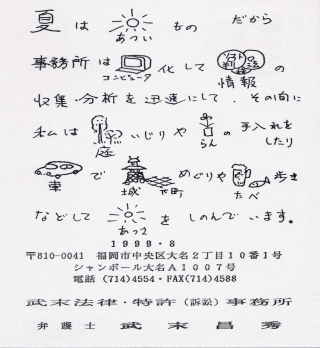 夏は あつい もの だから
事務所は コンピュータ 化して 情報 の
収集・分析を迅速にして、その間に
私は 庭 いじりや らん の 手入れを したり
車 で 城 下町 めぐりや たべ 歩き
などして あつさ を しのんでいます。
1999・8
〒810-0041 福岡市中央区大名2丁目10番1号
シャンボール大名A1007号
電話 (714)4554・FAX(714)4588
武末法律・特許(訴訟)事務所
弁護士 武末昌秀